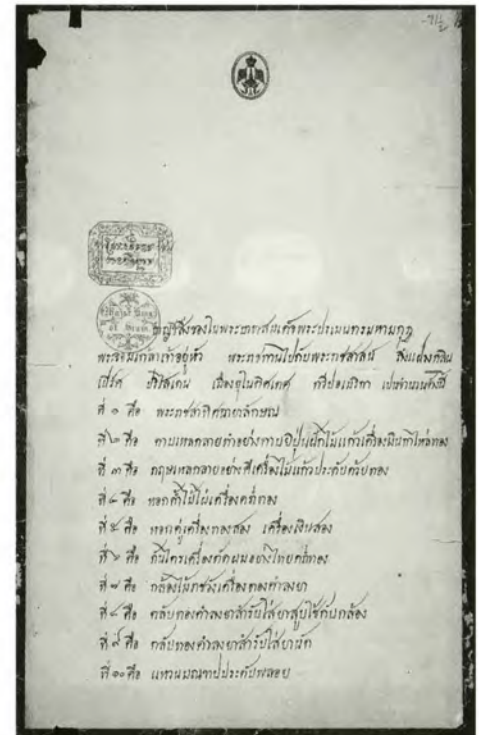 บาญชีสิ่งของในพระบาทสมเดจพระปรเมนทรมหามกุฎ
พระจอมเกล้าเจ้าอยู่หัว พระราชทานไปกับพระราชสาสน
เมืองยุไนติศเทศ ทวีปอเมริกา เปนจำนวนดังนี้
ที่ ๑ คือ พระราชสาทิศฉายาลักษณ
ที่ ๒ คือ ดาบเหลกลายทำอย่างดาบยี่ปุ่นฝักไม้แก้วเครื่องเงินทาไหล่ทอง
ที่ ๓ คือ กฤษเหลกลาย ไม้แก้วประดับด้วยทอง
ที่ ๔ คือ หอกด้ำไม้ไผ่เครื่องคร่ำทอง
ที่ ๕ คือ หอกคู่เครื่องทองสอง เครื่องเงินสอง
ที่ ๖ คือ กันไตรเครื่องตัดผมอย่างไทยคร่ำทอง
ที่ ๗ คือ กล้องไม้ เครื่องทองคำลงยา
ที่ ๘ คือ กลับทองคำลงยาสำรับใส่ยาสูบใช้กับกล้อง
ที่ ๙ คือ กลับทองคำลงยาสำรับใส่ยานัด
ที่ ๑๐ คือ แหวนมณฑปประดับพลอย